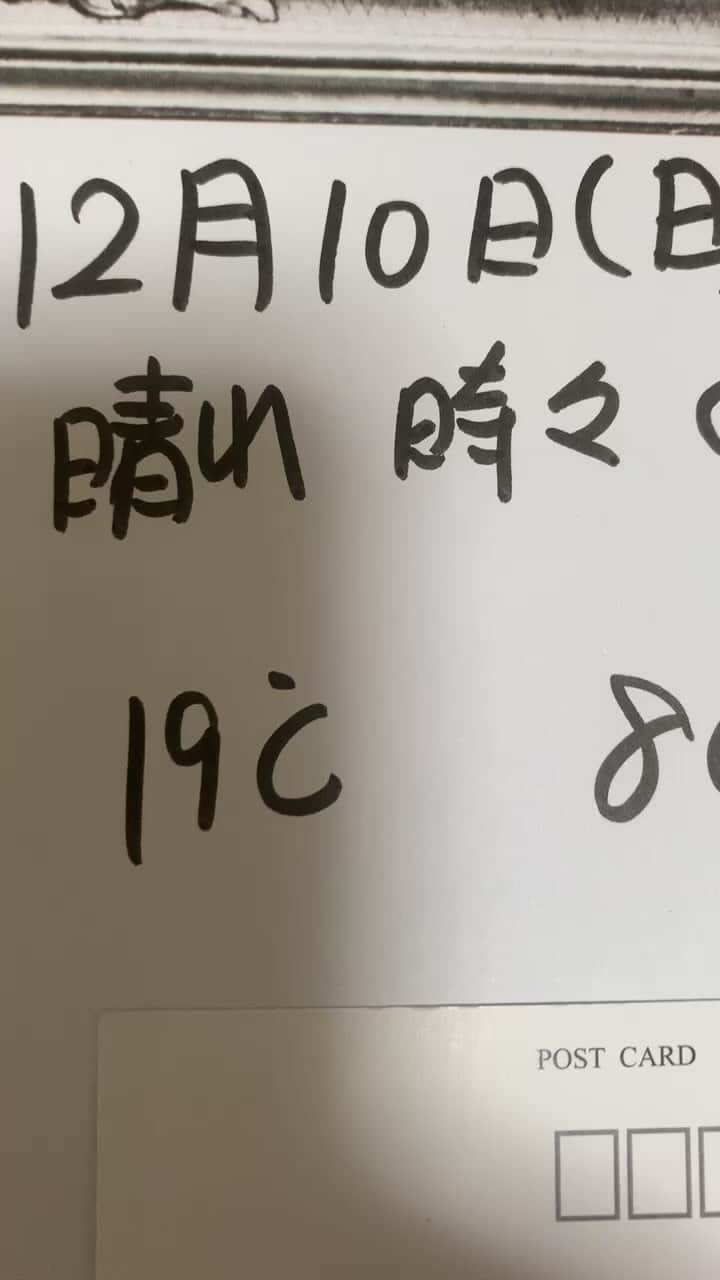 12月10日(日
晴れ 時々
19℃ 8
POST CARD